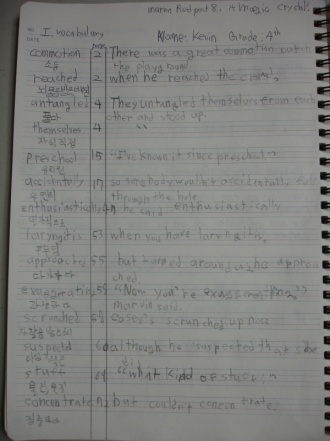 Marvin Redpost 8. A Magic Crystal?
I. vocabulary Name: Kevin Grade: 4th
commotion 2 There was a great comotion out in
소동 the playground.
reached 2 when he reached the
untangles 4 They untangled themselves from each
other and stood up.
themselves 4 "
자기 자신
preschool 15 "I've known it since preschool"
유치원
accidentally 17 so somebody wouldn't accidentally fall
through the hole.
enthusiastically he said enthusiastically.
laryngitis 53 when you have laryngitis.
approached 55 but turned around as he approa
ched
exaggerating "No you're exaggerating,"
marvin said.
scrunched Casey's scrunched up nose
suspected 60 although he suspected that she
did
stuff 64 "What kind of stuff?"
concentrate but couldn't concentrate.
집중하다